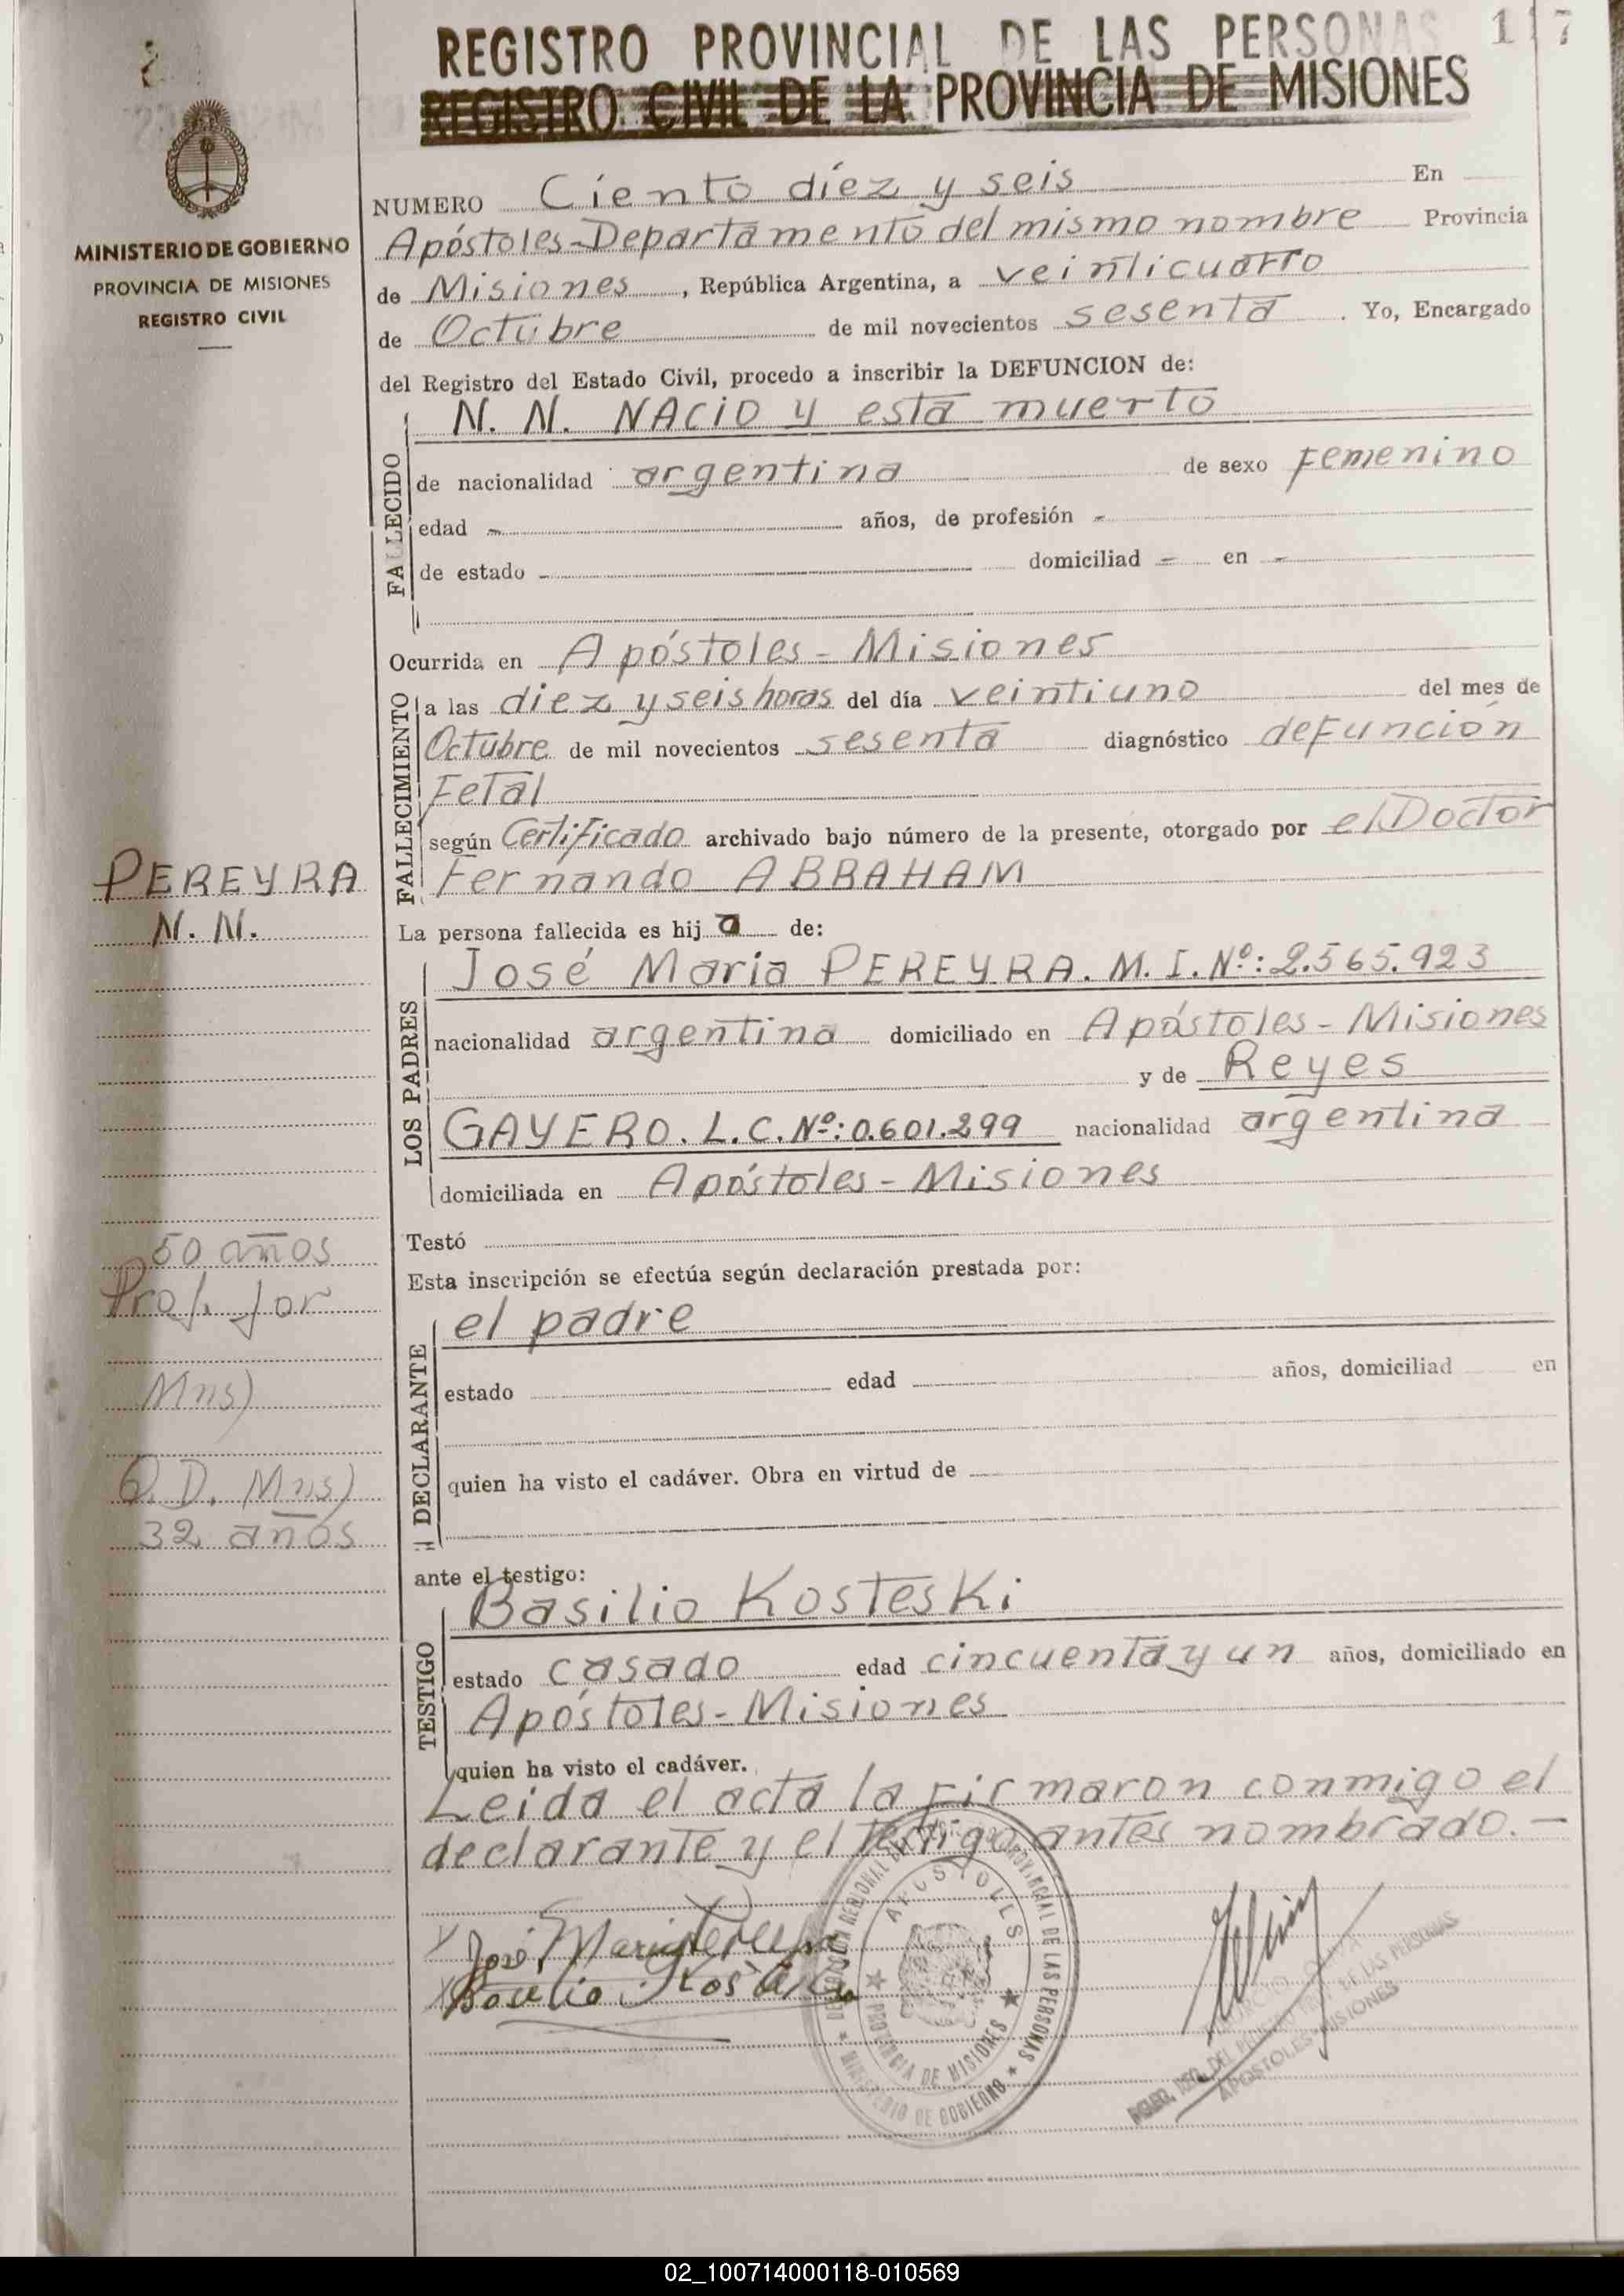 REGISTRO PROVINCIAL DE LAS PERSONAS
117
REGISTRO CIVIL DE LA PROVINCIA DE MISIONES
MINISTERIO DE GOBIERNO
PROVINCIA DE MISIONES
REGISTRO CIVIL
NUMERO Ciento diez y seis En
Apóstoles-Departamento del mismo nombre Provincia
de Misiones, República Argentina, a veinticuatro
de Octubre de mil novecientos sesenta. Yo, Encargado
del Registro del Estado Civil, procedo a inscribir la DEFUNCION de:
FALLECIDO
N. N. NACIO y esta muerto
de nacionalidad argentina de sexo Femenino
edad - años, de profesión -
de estado - domiciliad - en -
Ocurrida en Apóstoles - Misiones
FALLECIMIENTO
a las diez y seis horas del día veintiuno del mes de
Octubre de mil novecientos sesenta diagnóstico defunción
Fetal
según Certificado archivado bajo número de la presente, otorgado por el Doctor
Fernando ABRAHAM
PEREYRA
N. N.
La persona fallecida es hija de:
LOS PADRES
José Maria PEREYRA. M. I. Nº: 2.565.923
nacionalidad argentina domiciliado en Apóstoles - Misiones
y de Reyes
GAYERO. L. C. Nº: 0.601.299 nacionalidad argentina
domiciliada en Apóstoles - Misiones
Testó
Esta inscripción se efectúa según declaración prestada por:
50 años
Prof. Jor
Mns)
Q. D. Mns)
32 años
DECLARANTE
el padre
estado edad años, domiciliad en
quien ha visto el cadáver. Obra en virtud de
ante el testigo:
TESTIGO
Basilio Kosteski
estado casado edad cincuenta y un años, domiciliado en
Apóstoles - Misiones
quien ha visto el cadáver.
Leida el acta la firmaron conmigo el
declarante y el testigo antes nombrado. -
José Maria Pereyra
Basilio Kosteski
APOSTOLES
PROVINCIA DE MISIONES
MINISTERIO DE GOBIERNO
APOSTOLES MISIONES
02_100714000118-010569